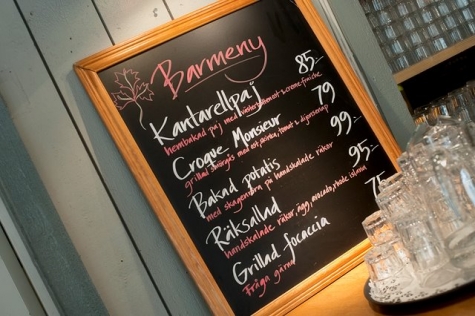 Barmeny
Kantarellpaj 85:-
hembakad paj med
Croque Monsieur 79
grillad smörgås med ost, skinka, tomat & dijonsenap
Bakad potatis 99:-
med skagenröra på handskalade räkor
Räksallad 95:-
handskalade räkor, ägg, avocado, rhode island
Grillad focaccia 75
Fråga gärna